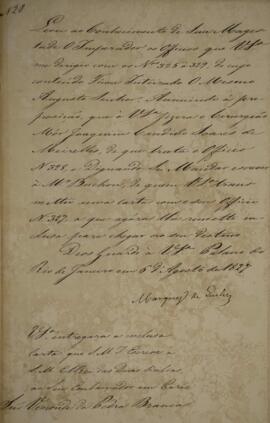 N 20
Levei ao Conhecimento de Sua Mages
tade O Imperador os Officios que V. Sª
me dirigio com os Nos 325 a 329, de cujo
contendo Ficou Inteirado O Mesmo
Augusto Senhor. Annuindo á pro
posição, que á V. Sª fizera o Cirurgião
Mór Joaquim Candido Soares de
Meirelles, de que trata o Officio
N. 328, e Dignando Se Mandar
á Mr Buchon, de quem V. Sª trans
mettio uma carta com o seu Officio
N. 327 a que agora lhe remetto in
clusa para chegar ao seu destino.
Deos Guarde á V. Sª Palacio do
Rio de Janeiro em 6 d'Agosto de 1827
Marquez de Queluz
V. Sª entregará a inclusa
carta que S. M. I. Escreve a
S. M. ElRei das Duas Sicilias
ao Seu Embaixador em Paris
Snr Visconde da Pedra Branca